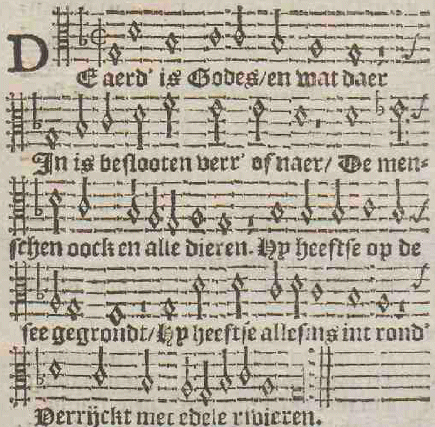 DE aerd' is Godes/en wat daer
In is beslooten verr' of naer/ De men-
schen oock en alle dieren. Hy heeftse op de
see gegrondt/Hy heeftse allesins int rond'
Verrijckt met edele rivieren.